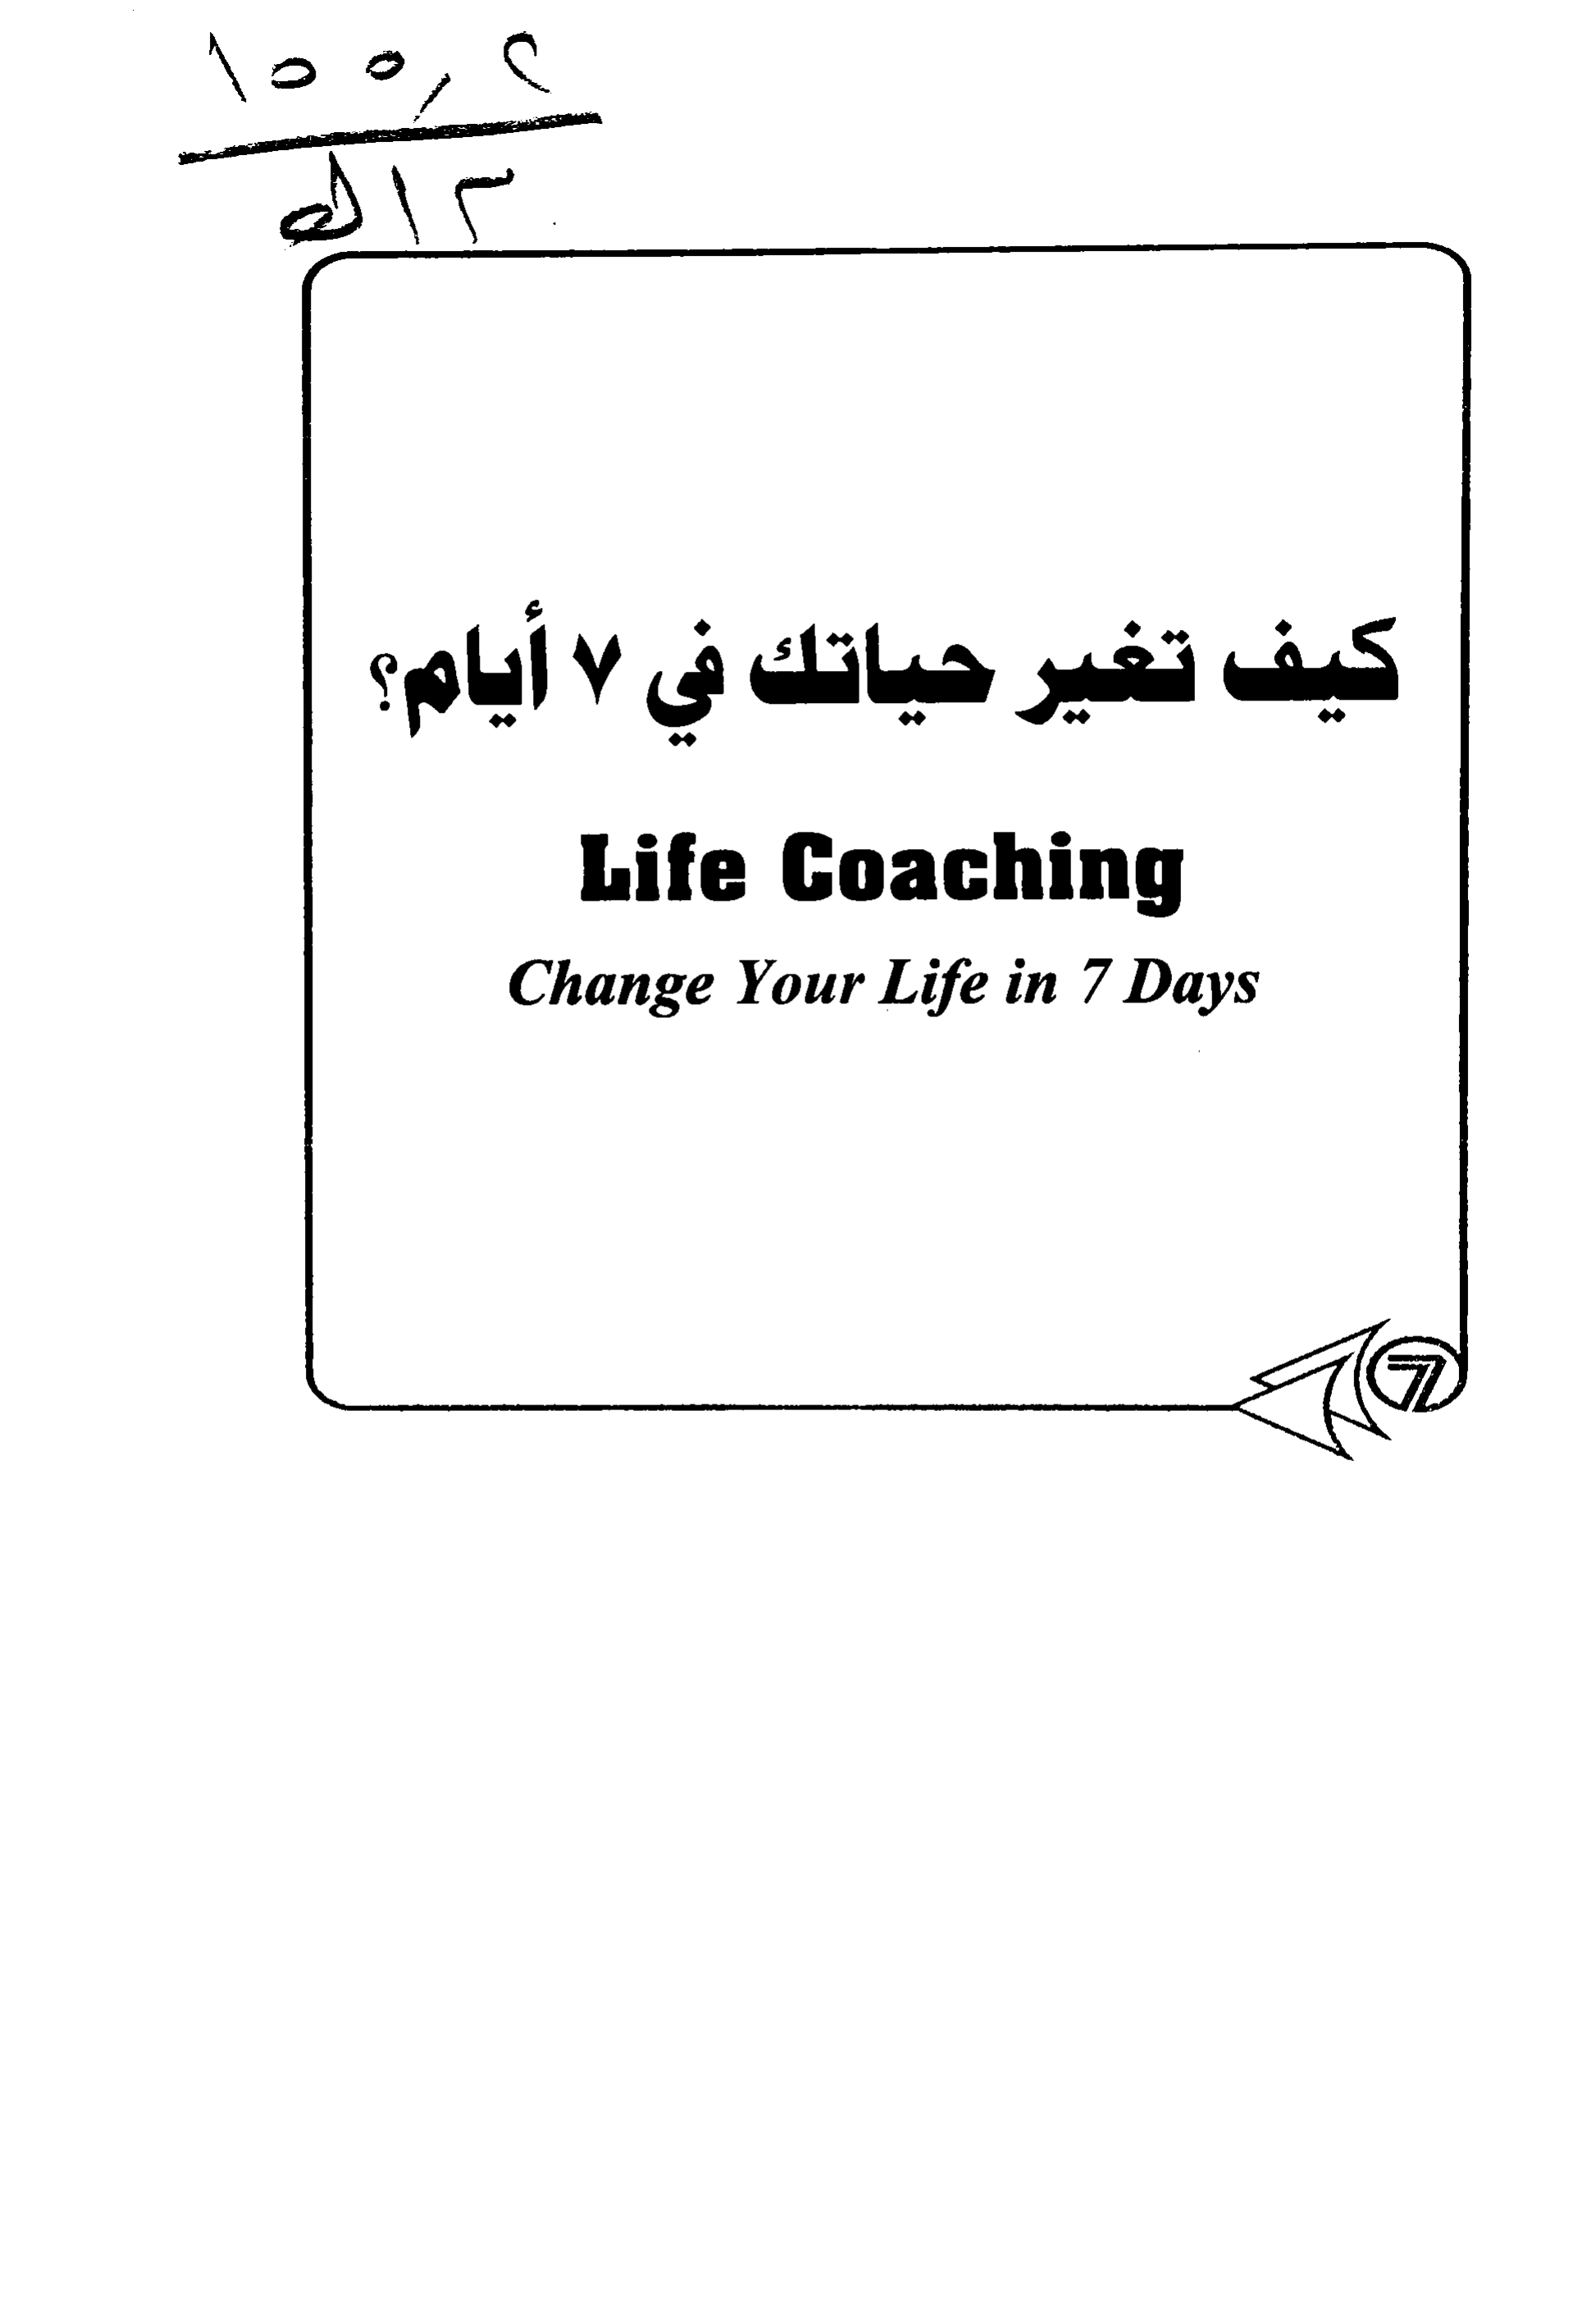 ١٥٥,٢
كيف تغير حياتك في ٧ أيام؟
Life Coaching
Change Your Life in 7 Days
7